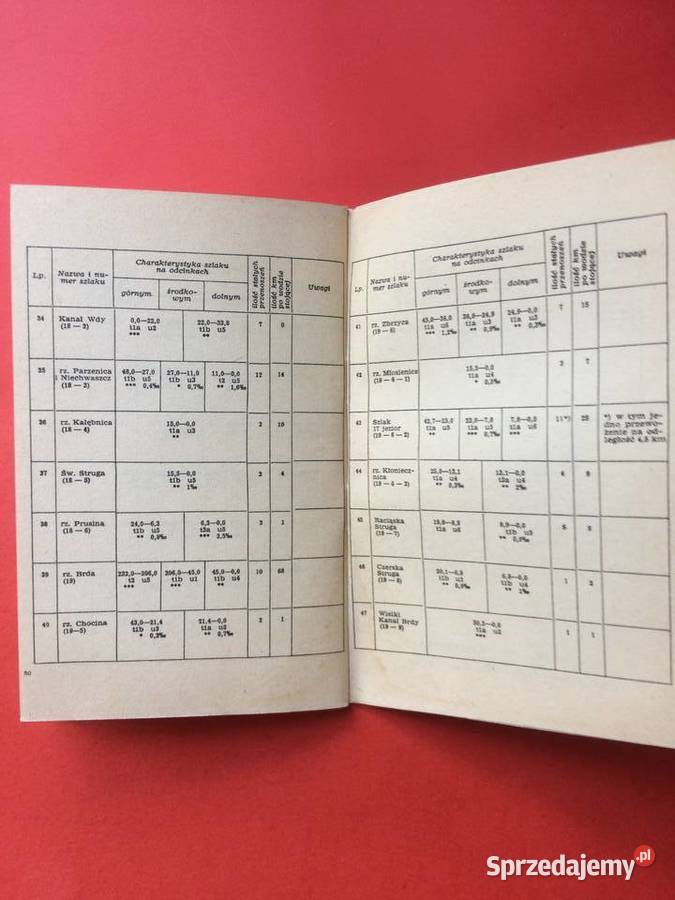 Lp.
Nazwa i nu-
mer szlaku
Charakterystyka szlaku
na odcinkach
górnym
środko-
wym
dolnym
ilość stałych
przenoszeń
ilość km
po wodzie
stojącej
Uwagi
34 Kanał Wdy
(18 — 2)
0,0—22,0 22,0—33,8 7 0
t1a u2 t1b u5
*** **
35 rz. Parzenica
i Niechwaszcz
(18 — 3)
48,0—27,0 27,0—11,0 11,0—0,0 12 14
t1b u5 t1b u3 t2 u5
*** 0,4‰ * 0,7‰ ** 1,6‰
36 rz. Kałębnica
(18 — 4)
13,0—0,0 2 10
t1a u3
**
37 Św. Struga
(18 — 5)
15,5—0,0 2 4
t1b u5
** 1‰
38 rz. Prusina
(18 — 6)
24,0—6,3 6,3—0,0 3 1
t1b u5 t3a u5
** 0,9‰ *** 3,5‰
39 rz. Brda
(19)
232,0—206,0 206,0—45,0 45,0—0,0 10 68
t2 u5 t1b u1 t1b u4
*** *** **
40 rz. Chocina
(19—5)
43,0—21,4 21,4—0,0 2 1
t1b u3 t1a u2
* 0,3‰ ** 0,7‰
80
Lp.
Nazwa i nu-
mer szlaku
Charakterystyka szlaku
na odcinkach
górnym
środko-
wym
dolnym
ilość stałych
przenoszeń
ilość km
po wodzie
stojącej
Uwagi
41 rz. Zbrzyca
(19 — 6)
45,0—36,0 36,0—24,9 24,9—0,0 7 15
t1a u6 t1a u3 t1a u3
*** 1,2‰ ** 0,9‰ ** 0,3‰
42 rz. Młosienica
(19 — 6 — 1)
15,5—0,0 3 7
t1a u4
* 0,5‰
43 Szlak
17 jezior
(19 — 6 — 2)
42,7—23,0 23,0—7,0 7,0—0,0 11*) 25
t1a u5 t1a u3 t1a u6
** *** 0,7‰ ***
*) w tym je-
dno przewo-
żenie na od-
ległość 4,5 km
44 rz. Kłoniecz-
nica
(19 — 6 — 3)
25,0—13,1 13,1—0,0 6 8
t1a u4 t3a u4
** 0,3‰ ** 2‰
45 Raciąska
Struga
(19 — 7)
19,8—8,9 8,9—0,0 5 5
t1a u6 t1a u3
** 0,9‰
46 Czerska
Struga
(19 — 8)
20,1—6,8 6,8—0,0 1 2
t1b u2 t1b u4
** 0,6‰ ** 1‰
47 Wielki
Kanał Brdy
(19 — 9)
30,3—0,0 1 1
t1a u2
***
Sprzedajemy.pl